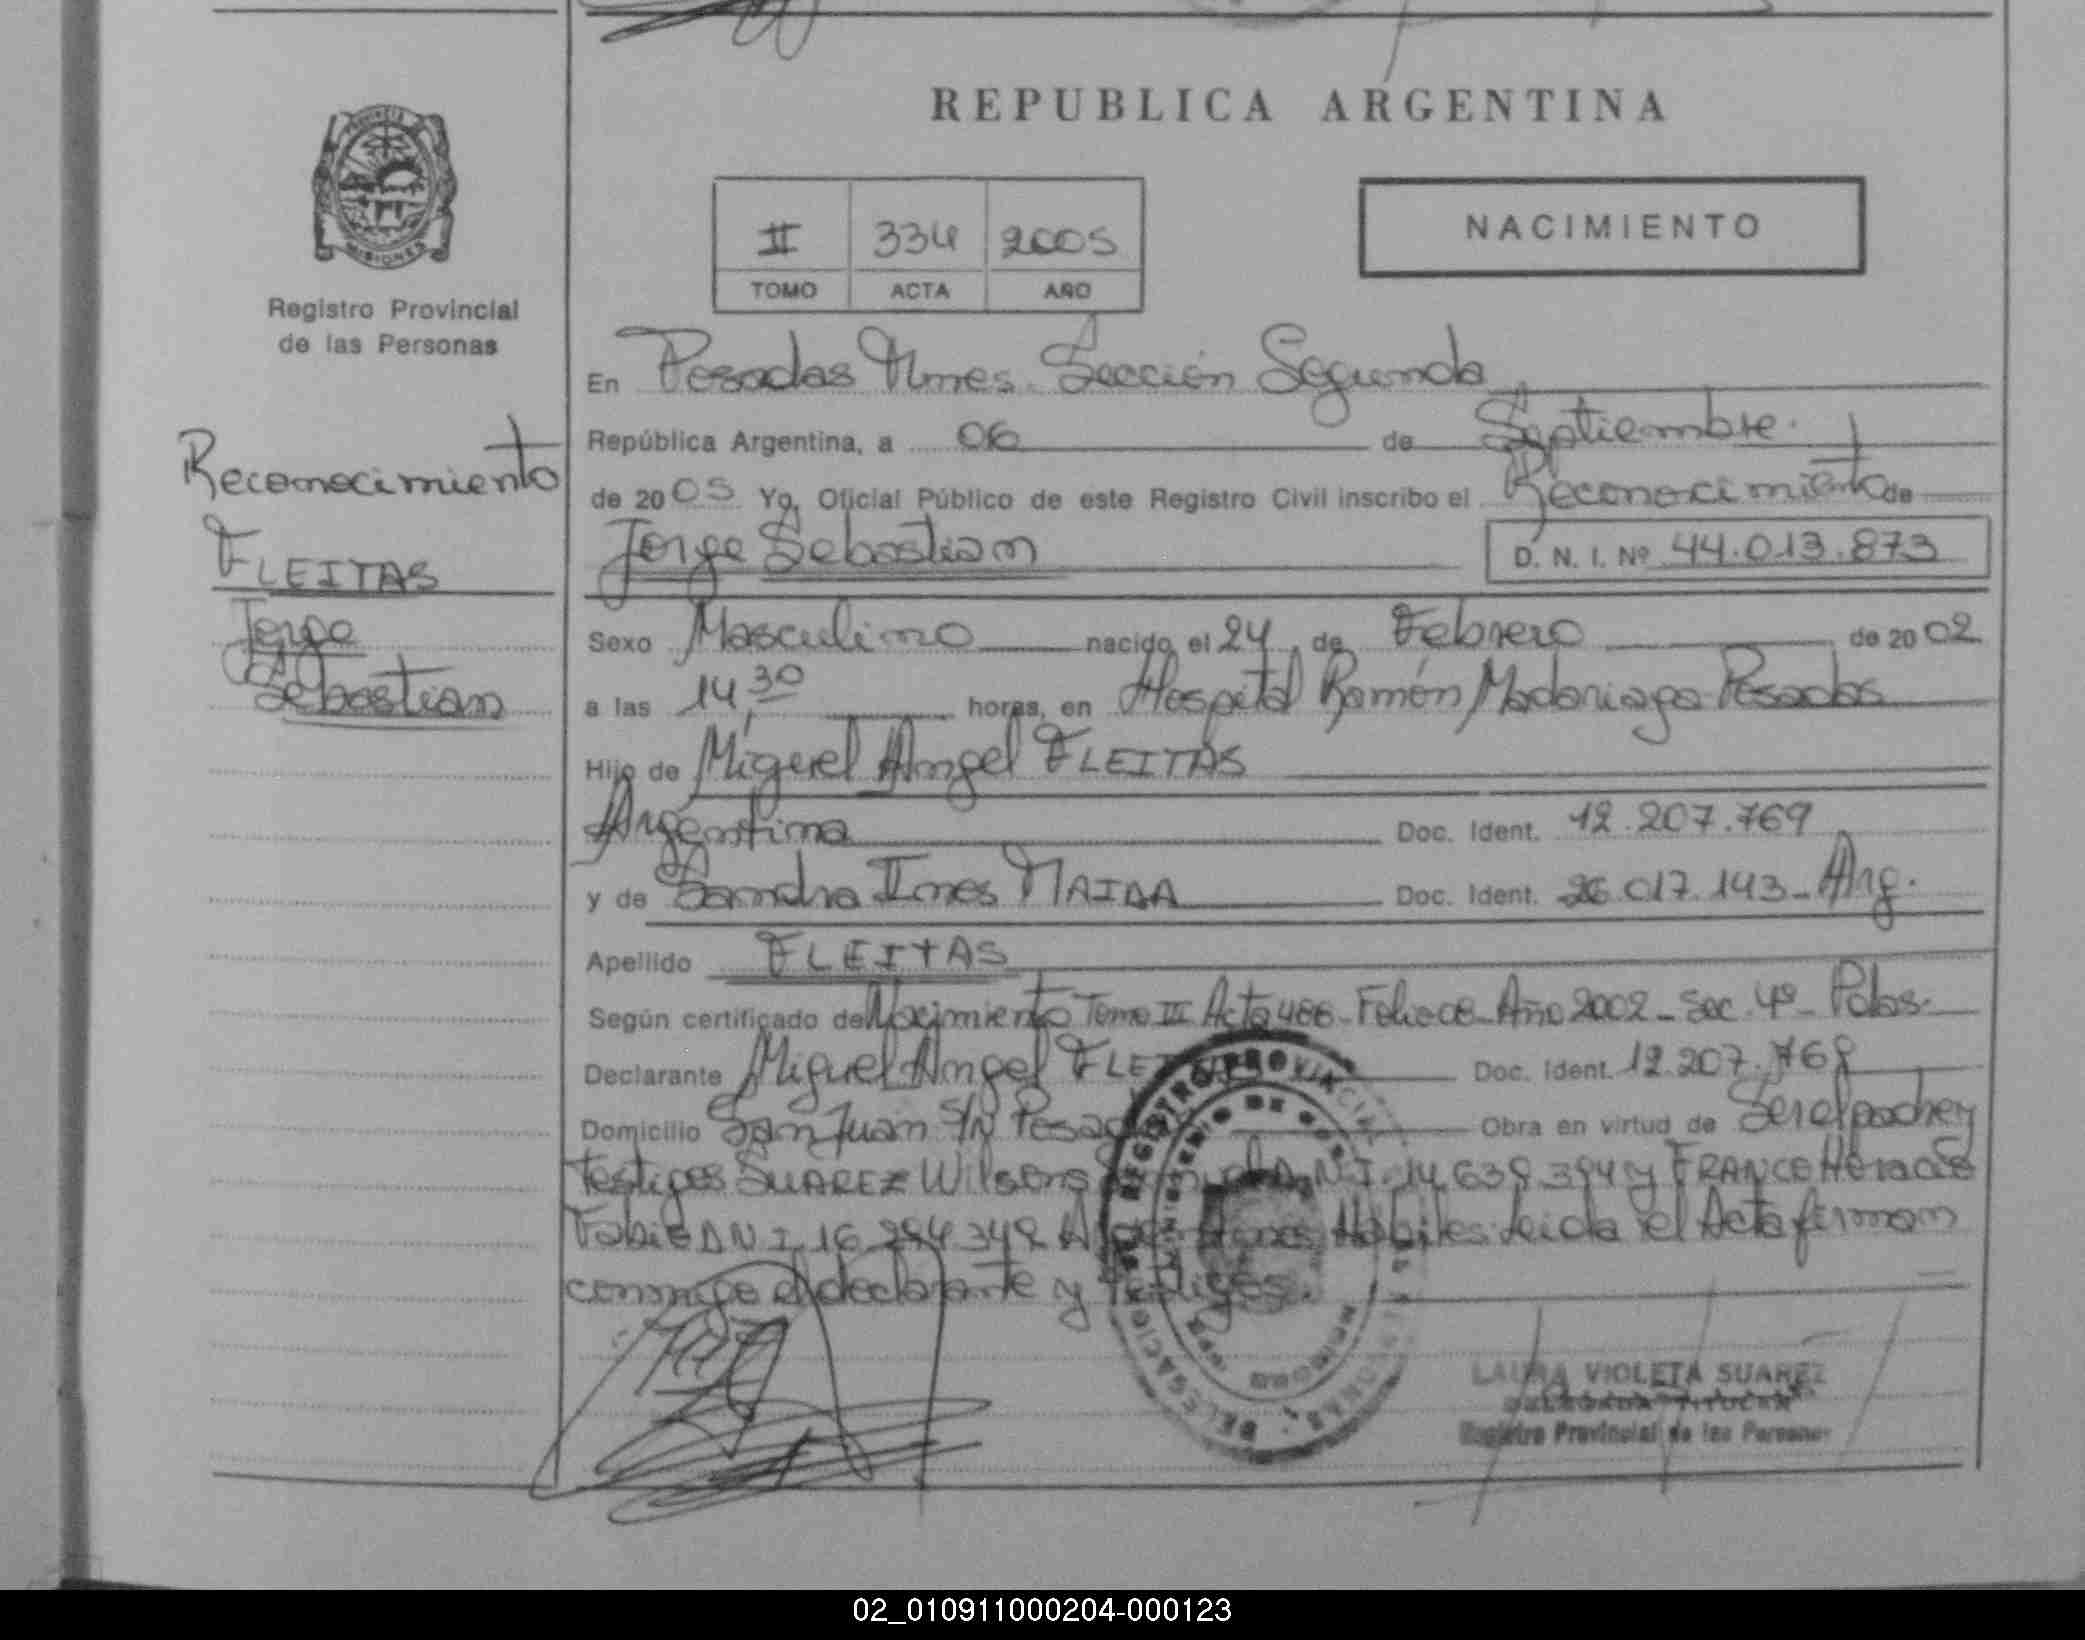 REPUBLICA ARGENTINA
PROVINCIA
MISIONES
Registro Provincial
de las Personas
II 334 2005
TOMO ACTA AÑO
NACIMIENTO
En Posadas Mnes. Sección Segunda
República Argentina, a 06 de Septiembre.
de 2005 Yo, Oficial Público de este Registro Civil inscribo el Reconocimiento de
Jorge Sebastian
D. N. I. Nº 44.013.873
Reconocimiento
FLEITAS
Jorge
Sebastian
Sexo Masculino nacido el 24 de Febrero de 2002
a las 14,30 horas, en Hospital Ramón Madariaga Posadas
Hijo de Miguel Angel FLEITAS
Argentina Doc. Ident. 12.207.769
y de Sandra Ines Doc. Ident. 26.017.143 - Arg.
Apellido FLEITAS
Según certificado de Nacimiento Tomo III Acta Folio 08 - Año 2002 - Sec. 4º - Pdas.
Declarante Miguel Angel Doc. Ident. 12.207.
Domicilio San Juan S/N Obra en virtud de Ser el padre y
testigos SUAREZ D.N.I. 14.639.394 y FRANCO Horacio
Fabio D N I 16 Hábiles Leida el Acta firman
conmigo el declarante y testigos.
REGISTRO PROVINCIAL
LAURA VIOLETA SUAREZ
DELEGADA TITULAR
Registro Provincial de las Personas
02_010911000204-000123